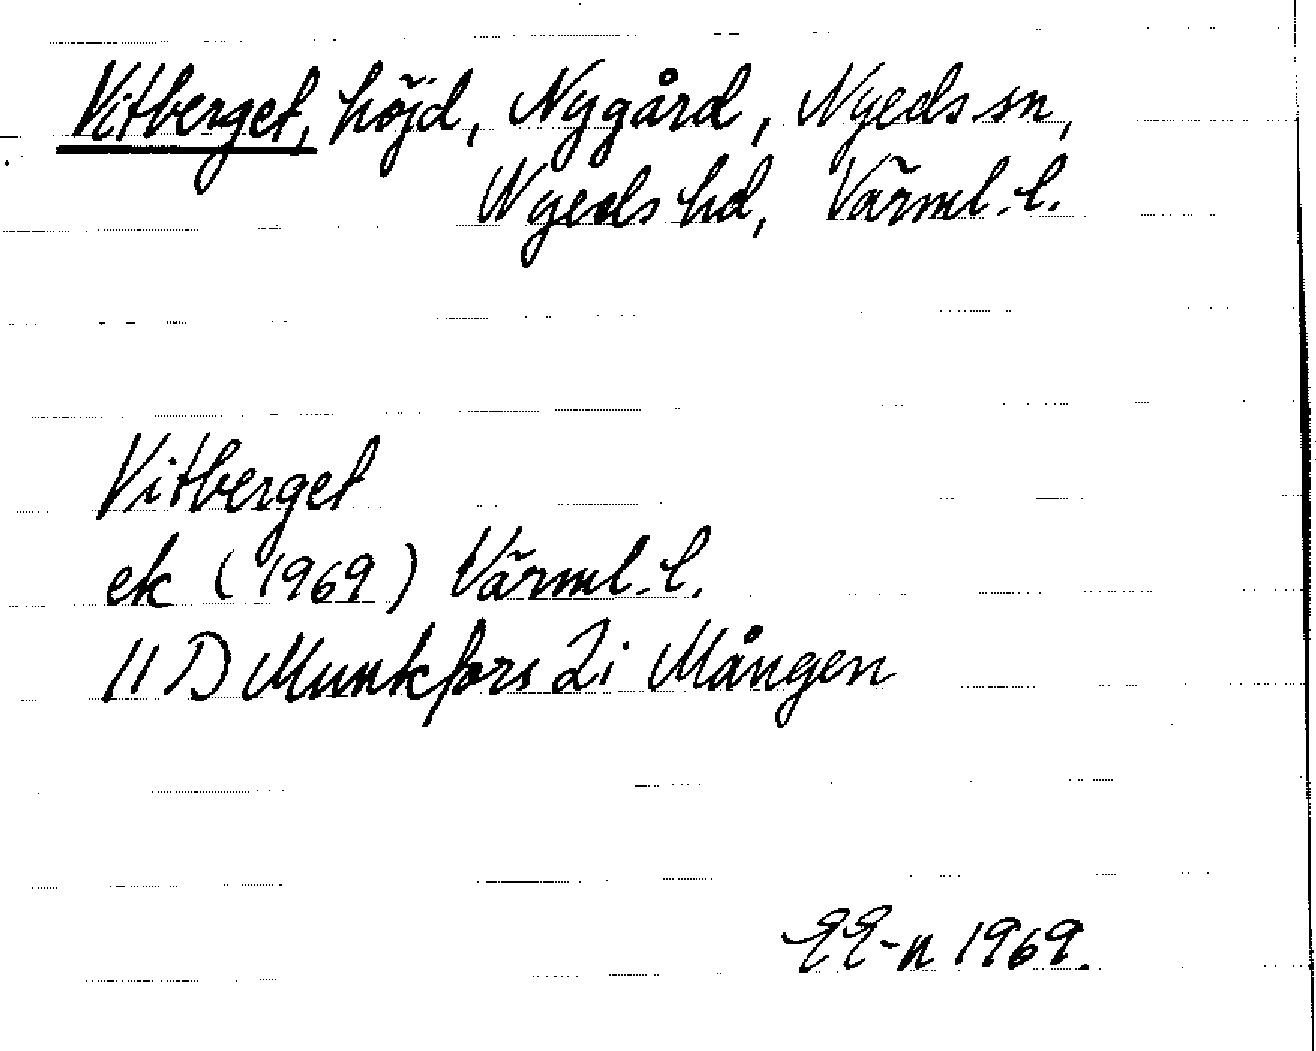 Vitberget, höjd, Nygård, Nyeds sn,
Nyeds hd, Värml. l.
Vitberget
ek (1969) Värml. l.
11 D Munkfors 2i Mången
EE-n 1969.